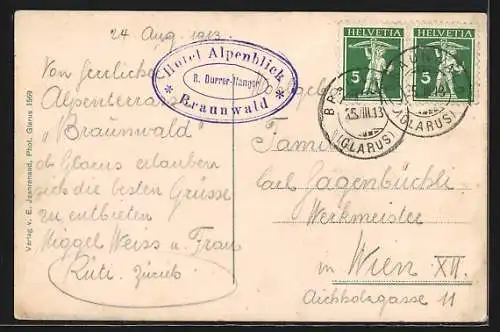 24 Aug. 1913
Hotel Alpenblick
R. Durrer-Hanger
* Braunwald *
HELVETIA
5
HELVETIA
5
(GLARUS)
(GLARUS)
Von herrlicher
Alpenterrasse
"Braunwald"
ob Glarus erlauben
sich die besten Grüsse
zu entbieten
Higgel Weiss u. Frau
Rüti. Zürich
Familie
Carl Jagenbüchli
Werkmeister
in Wien XII.
Aichholzgasse 11
Verlag v. E. Jeanrenaud, Phot. Glarus 1569